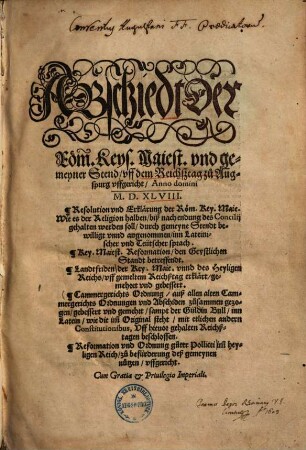 Conventus Augustani FF. Prædicatorum
Abschiedt Der
Röm. Keys. Maiest. vnd ge-
meyner Stend / vff dem Reichßtag zů Aug-
spurg vffgericht / Anno domini
M. D. XLVIII.
¶ Resolution vnd Erklärung der Röm. Key. Maie.
Wie es der Religion halben / biß nach endung des Concilij
gehalten werden soll / durch gemeyne Stendt be-
williget vnnd angenommen / inn Latein-
scher vnd Teütscher sprach.
¶ Key. Maiest. Reformation / den Geystlichen
Standt betreffendt.
¶ Landtfriden / der Key. Maie. vnnd des Heyligen
Reichs / vff gemeltem Reichßtag erklärt / ge-
mehret vnd gebessert.
¶ Cammergerichts Ordnung / auß allen alten Cam-
mergerichts Ordnungen vnd Abschiden zůsammen gezo-
gen / gebessert vnd gemehrt / sampt der Guldin Bull / inn
Latein / wie die inn Original steht / mit etlichen andern
Constitutionibus, Vff hieuor gehalten Reichs-
tagen beschlossen.
¶ Reformation vnd Ordnung gůter Pollicei inn hey-
ligen Reich / zů befürderung deß gemeynen
nützen / vffgericht.
Cum Gratia & Priuilegio Imperiali.